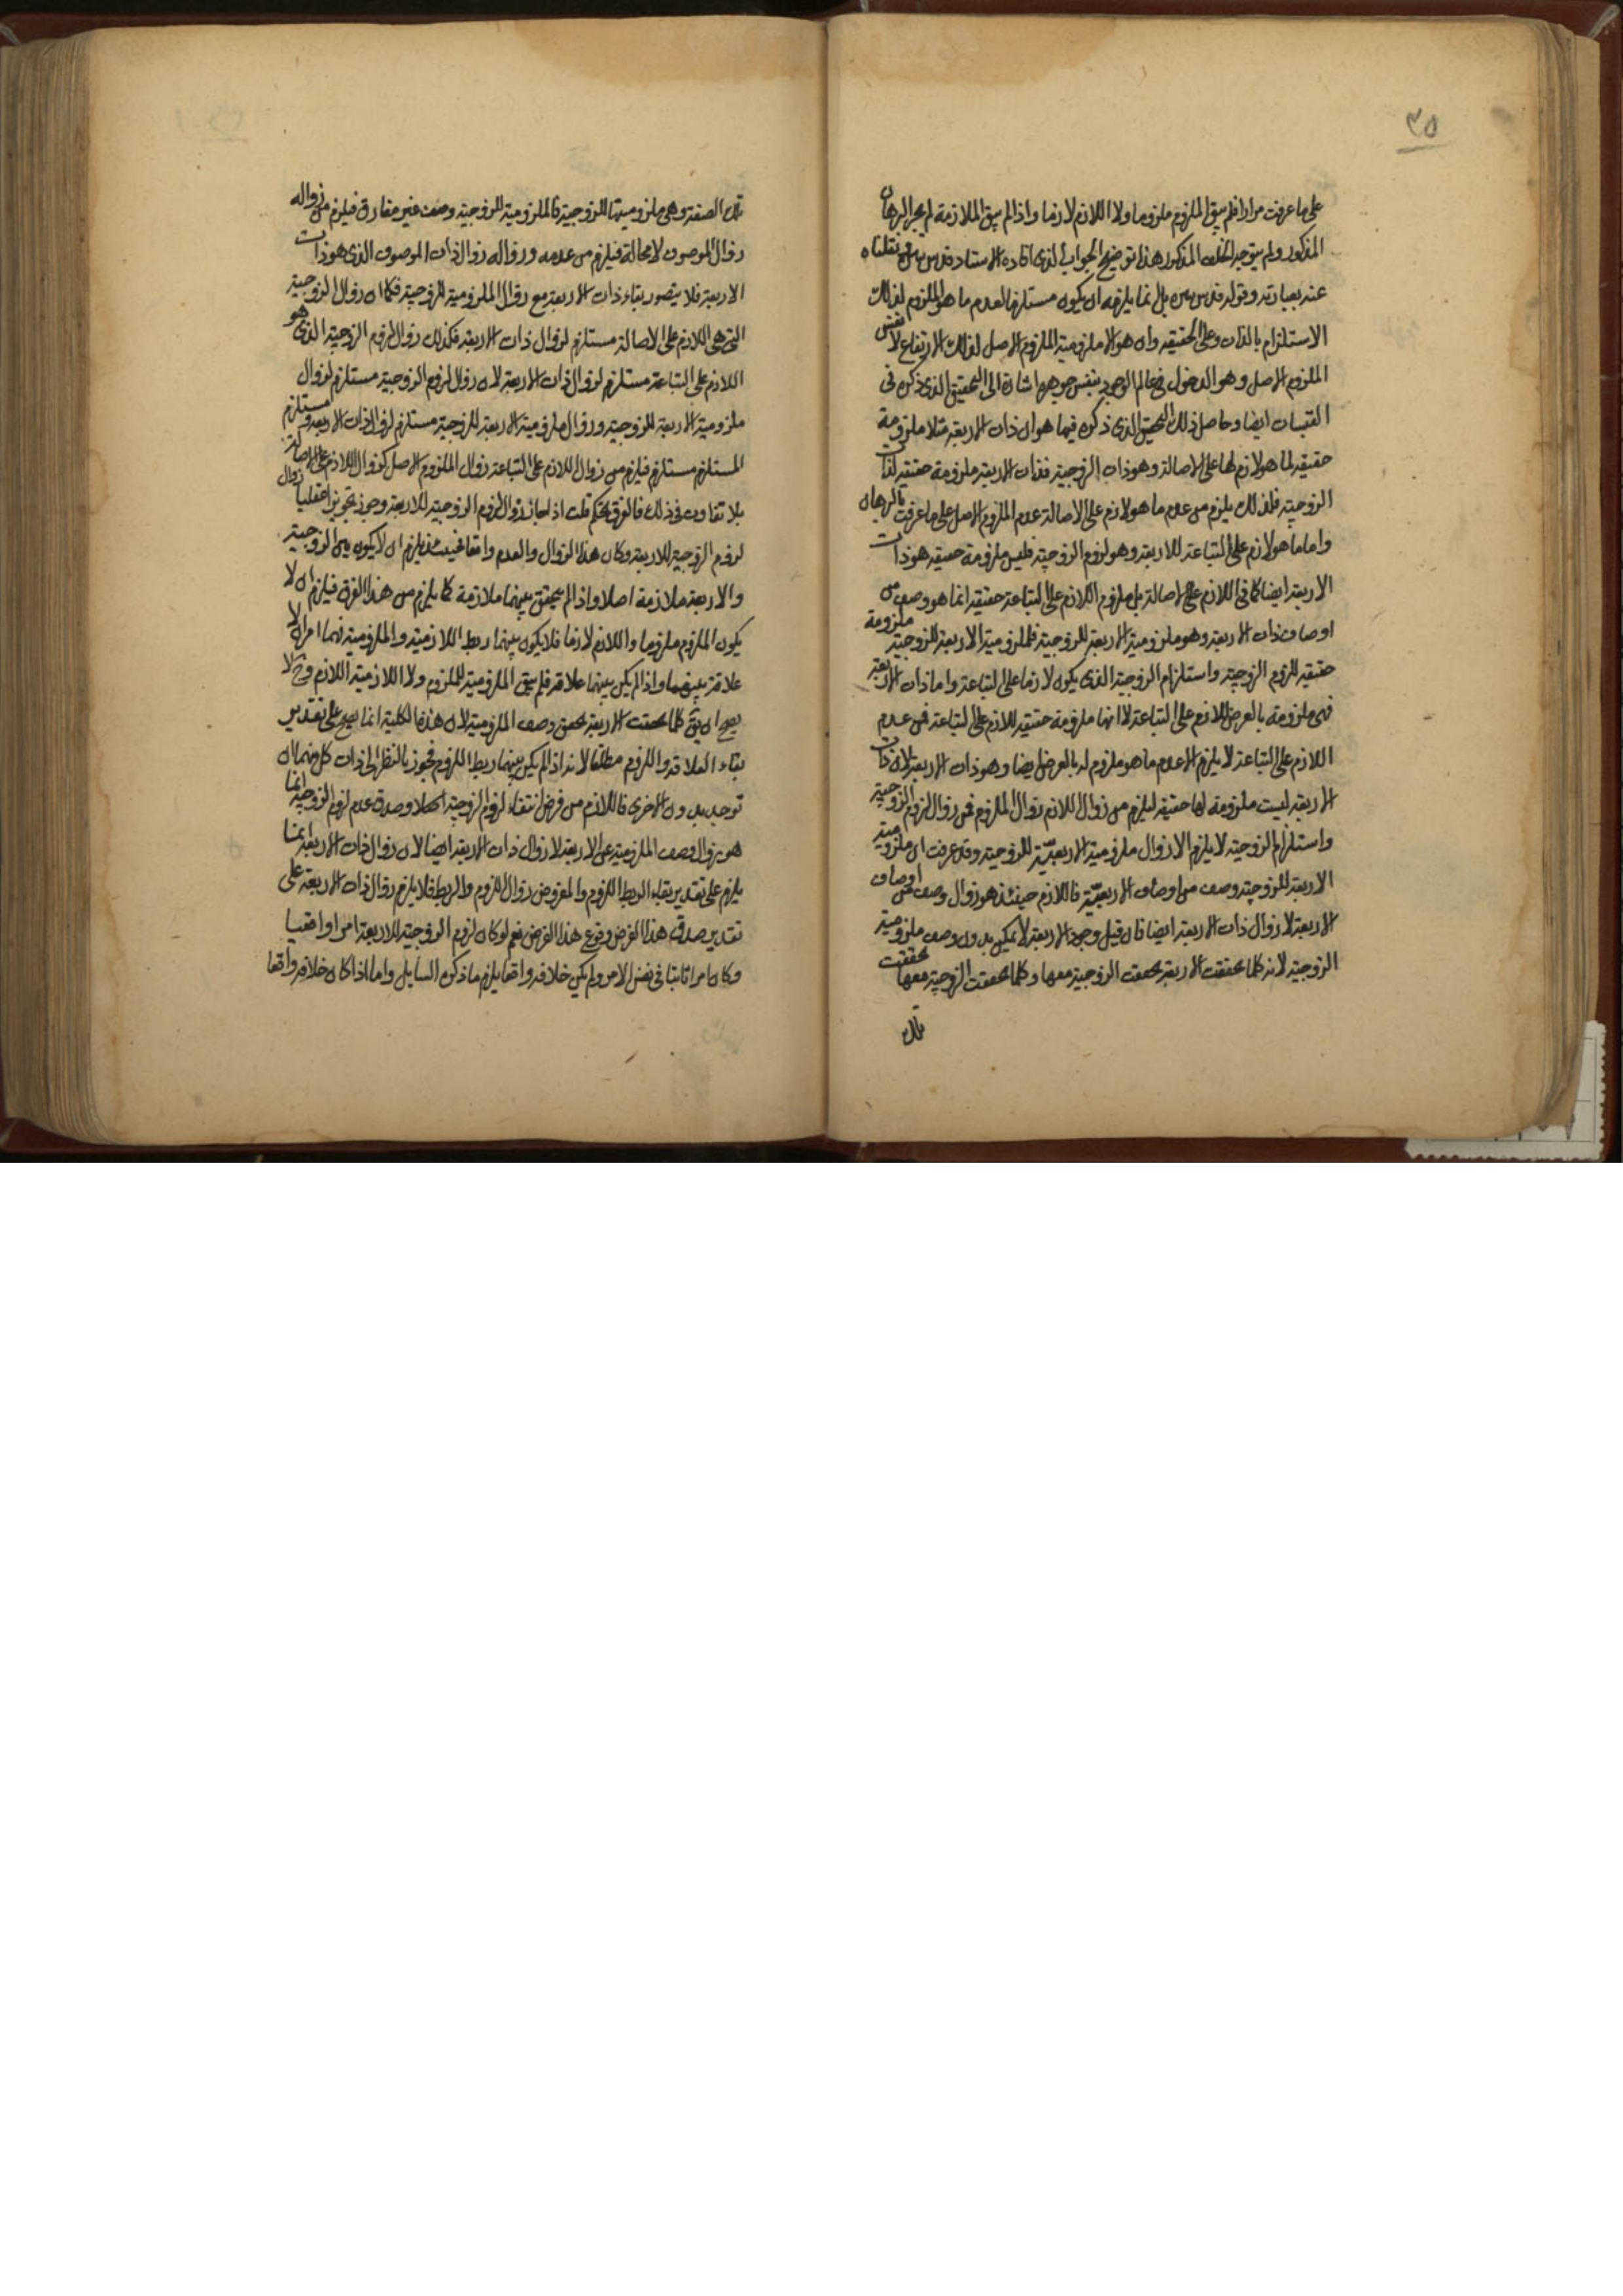 ٣٥
على ما عرفت مرارا فلم يبق الملزوم ملزوما ولا اللازم لازما واذا لم يبق الملازمة لم يجر البرهان
المذكور ولم يتوجه الخلف المذكور هذا توضيح الجواب الذى افاده الاستاد قدس سره نقلناه
عنه بعبارته وقوله قدس سره بل انما يلزمه ان يكون مستلزما لعدم ما هو الملزوم لذلك
الاستلزام بالذات وعلى الحقيقه وان هو الا ملزومية الملزوم الاصل لذلك الارتفاع لا نفس
الملزوم الاصل وهو الدخول فى عالم الوجود بنفس جوهره اشارة الى التحقيق الذى ذكره فى
القبسات ايضا وحاصل ذلك التحقيق الذى ذكره فيما هو ان ذات الاربعة مثلا ملزومة
حقيقه لما هو لازم لها على الاصالة وهو ذات الزوجية فذات الاربعة ملزومة حقيقه لذات
الزوجيّة فلذلك يلزم من عدم ما هو لازم على الاصالة عدم الملزوم الاصل على ما عرفت بالبرهان
واما ما هو لازم على التباعة للاربعة وهو لزوم الزوجيّة فليس ملزومه حقيقه هو ذات
الاربعة ايضا كما فى اللازم على الاصالة بل ملزوم اللازم على التباعة حقيقه انما هو وصف من
اوصاف ذات الاربعة وهو ملزومية الاربعة للزوجية فملزومية الاربعة للزوجية ملزومة
حقيقه للزوم الزوجيّة واستلزام الزوجية الذى يكون لازما على التباعة واما ذات الاربعة
فهى ملزومة بالعرض للازم على التباعة لا انها ملزومة حقيقه للازم على التباعة فمن عدم
اللازم على التباعة لا يلزم الا عدم ما هو ملزوم له بالعرض ايضا وهو ذات الاربعة لان ذات
الاربعة ليست ملزومة لها حقيقه ليلزم من زوال اللازم زوال الملزوم فمن زوال لزوم الزوجية
واستلزام الزوجيّة لا يلزم الا زوال ملزومية الاربعيّة للزوجيّة وقد عرفت ان ملزومية
الاربعة للزوجيّة وصف من اوصاف الاربعيّة فاللازم حينئذ هو زوال وصف من اوصاف
الاربعة لا زوال ذات الاربعة ايضا فان قيل وجود الاربعة لا يمكن بدون وصف ملزومية
الزوجيّة لانه كلما تحققت الاربعة تحققت الزوجية معها وكلما تحققت الزوجيّة معها تحققت
تلك
تلك الصفة وهى ملزوميتها للزوجية فالملزومية للزوجية وصف غير مفارق فيلزم من زواله
زوال الموصوف لا محالة فيلزم من عدمه وزواله زوال ذات الموصوف الذى هو ذات
الاربعة فلا يتصور بقاء ذات الاربعة مع زوال الملزومية للزوجية فكما ان زوال الزوجية
التى هى اللازم على الاصالة مستلزم لزوال ذات الاربعة فكذلك زوال لزوم الزوجية الذى هو
اللازم على التباعة مستلزم لزوال ذات الاربعة لان زوال لزوم الزوجية مستلزم لزوال
ملزومية الاربعة للزوجية وزوال ملزومية الاربعة للزوجية مستلزم لزوال ذات الاربعة ومستلزم
المستلزم مستلزم فيلزم من زوال اللازم على التباعة زوال الملزوم الاصل كزوال اللازم على الاصالة
بلا تفاوت فى ذلك فالفرق تحكم قلت اذا جاز زوال لزوم الزوجية للاربعة وجوز تجويزا عقليا زوال
لزوم الزوجية للاربعة وكان هذا الزوال والعدم واقعا فحينئذ يلزم ان لا يكون بين الزوجية
والاربعة ملازمة اصلا واذا لم يتحقق بينهما ملازمة كما يلزم من هذا الفرض فيلزم ان لا
يكون الملزوم ملزوما واللازم لازما فلا يكون بينهما ربط اللازمية والملزومية فهما امران لا
علاقة بينهما واذا لم يكن بينهما علاقة فلم يبق الملزومية للملزوم ولا اللازمية للازم وح لا
يصح ان يق كلما تحققت الاربعة تحقق وصف الملزومية لان هذه الكلية انما يصح على تقدير
بقاء العلاقة واللزوم مطلقا لانه اذا لم يكن بينهما ربط اللزوم فيجوز بالنظر الى ذات كل منهما ان
توجد بدون الاخرى فاللازم من فرض انتفاء لزوم الزوجيّة اصلا وصدق عدم لزوم الزوجيّة انما
هو زوال وصف الملزومية عن الاربعة لا زوال ذات الاربعة ايضا لان زوال ذات الاربعة انما
يلزم على تقدير بقاء الربط اللزوم والمفروض زوال اللزوم والربط فلا يلزم زوال ذات الاربعة على
تقدير صدق هذا الفرض ووقوع هذا الفرض نعم لو كان لزوم الزوجية للاربعة امرا واقعيا
وكان امرا ثابتا فى نفس الامر ولم يكن خلافه واقعا يلزم ما ذكره السايل واما اذا كان خلافه واقعا